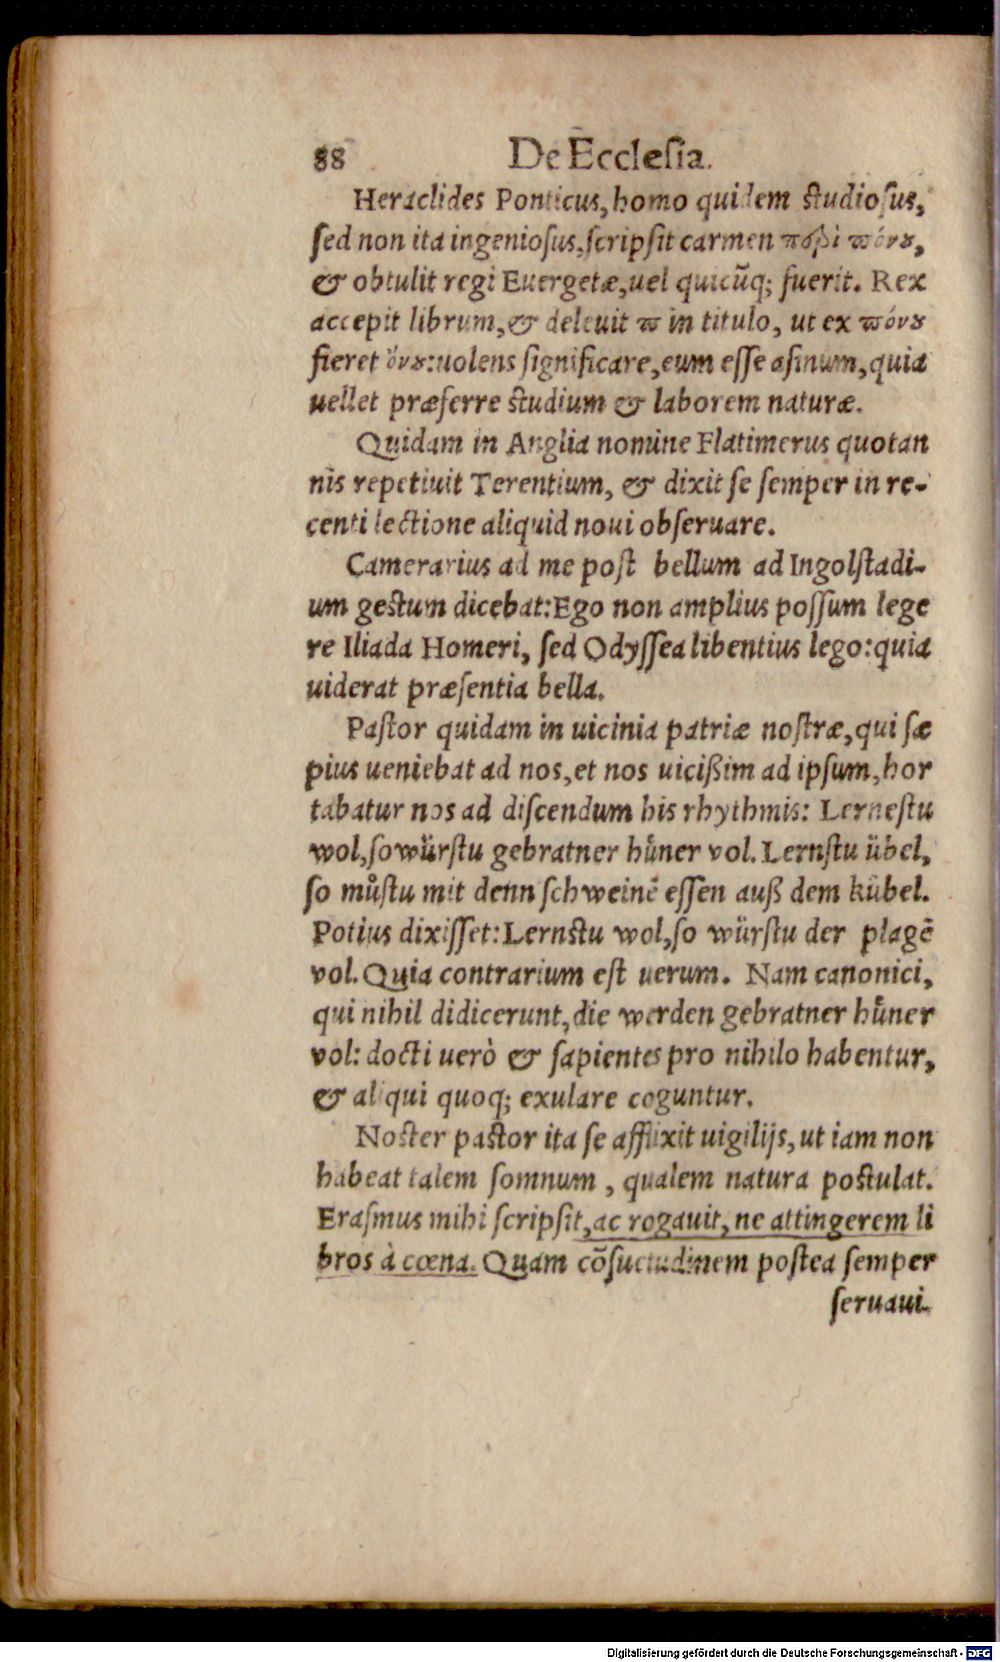 88 De Ecclesia.
Heraclides Ponticus, homo quidem studiosus,
sed non ita ingeniosus, scripsit carmen περὶ πόνȣ,
& obtulit regi Euergetæ, uel quicũq; fuerit. Rex
accepit librum, & deleuit ϖ in titulo, ut ex πόνȣ
fieret ὄνȣ: uolens significare, eum esse asinum, quia
uellet præferre studium & laborem naturæ.
Quidam in Anglia nomine Flatimerus quotan
nis repetiuit Terentium, & dixit se semper in re-
centi lectione aliquid noui obseruare.
Camerarius ad me post bellum ad Ingolstadi-
um gestum dicebat: Ego non amplius possum lege
re Iliada Homeri, sed Odyssea libentius lego: quia
uiderat præsentia bella.
Pastor quidam in uicinia patriæ nostræ, qui sæ
pius ueniebat ad nos, et nos uicißim ad ipsum, hor
tabatur nos ad discendum his rhythmis: Lernestu
wol, so würstu gebratner hůner vol. Lernstu übel,
so můstu mit denn schweinẽ essen auß dem kübel.
Potius dixisset: Lernstu wol, so würstu der plagẽ
vol. Quia contrarium est uerum. Nam canonici,
qui nihil didicerunt, die werden gebratner hůner
vol: docti uerò & sapientes pro nihilo habentur,
& aliqui quoq; exulare coguntur.
Noster pastor ita se afflixit uigilijs, ut iam non
habeat talem somnum, qualem natura postulat.
Erasmus mihi scripsit, ac rogauit, ne attingerem li
bros à cœna. Quam cõsuetudinem postea semper
seruaui.
Digitalisierung gefördert durch die Deutsche Forschungsgemeinschaft - DFG